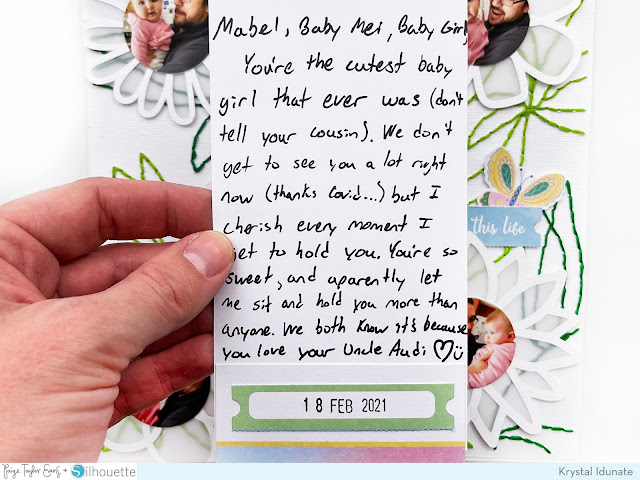 Mabel, Baby Mei, Baby Girl,
You're the cutest baby
girl that ever was (don't
tell your cousin). We don't
get to see you a lot right
now (thanks Covid...) but I
cherish every moment I
get to hold you. You're so
sweet, and aparently let
me sit and hold you more than
anyone. We both know it's because
you love your Uncle Audi
this life
18 FEB 2021
Paige Taylor Evans + Silhouette
Krystal Idunate